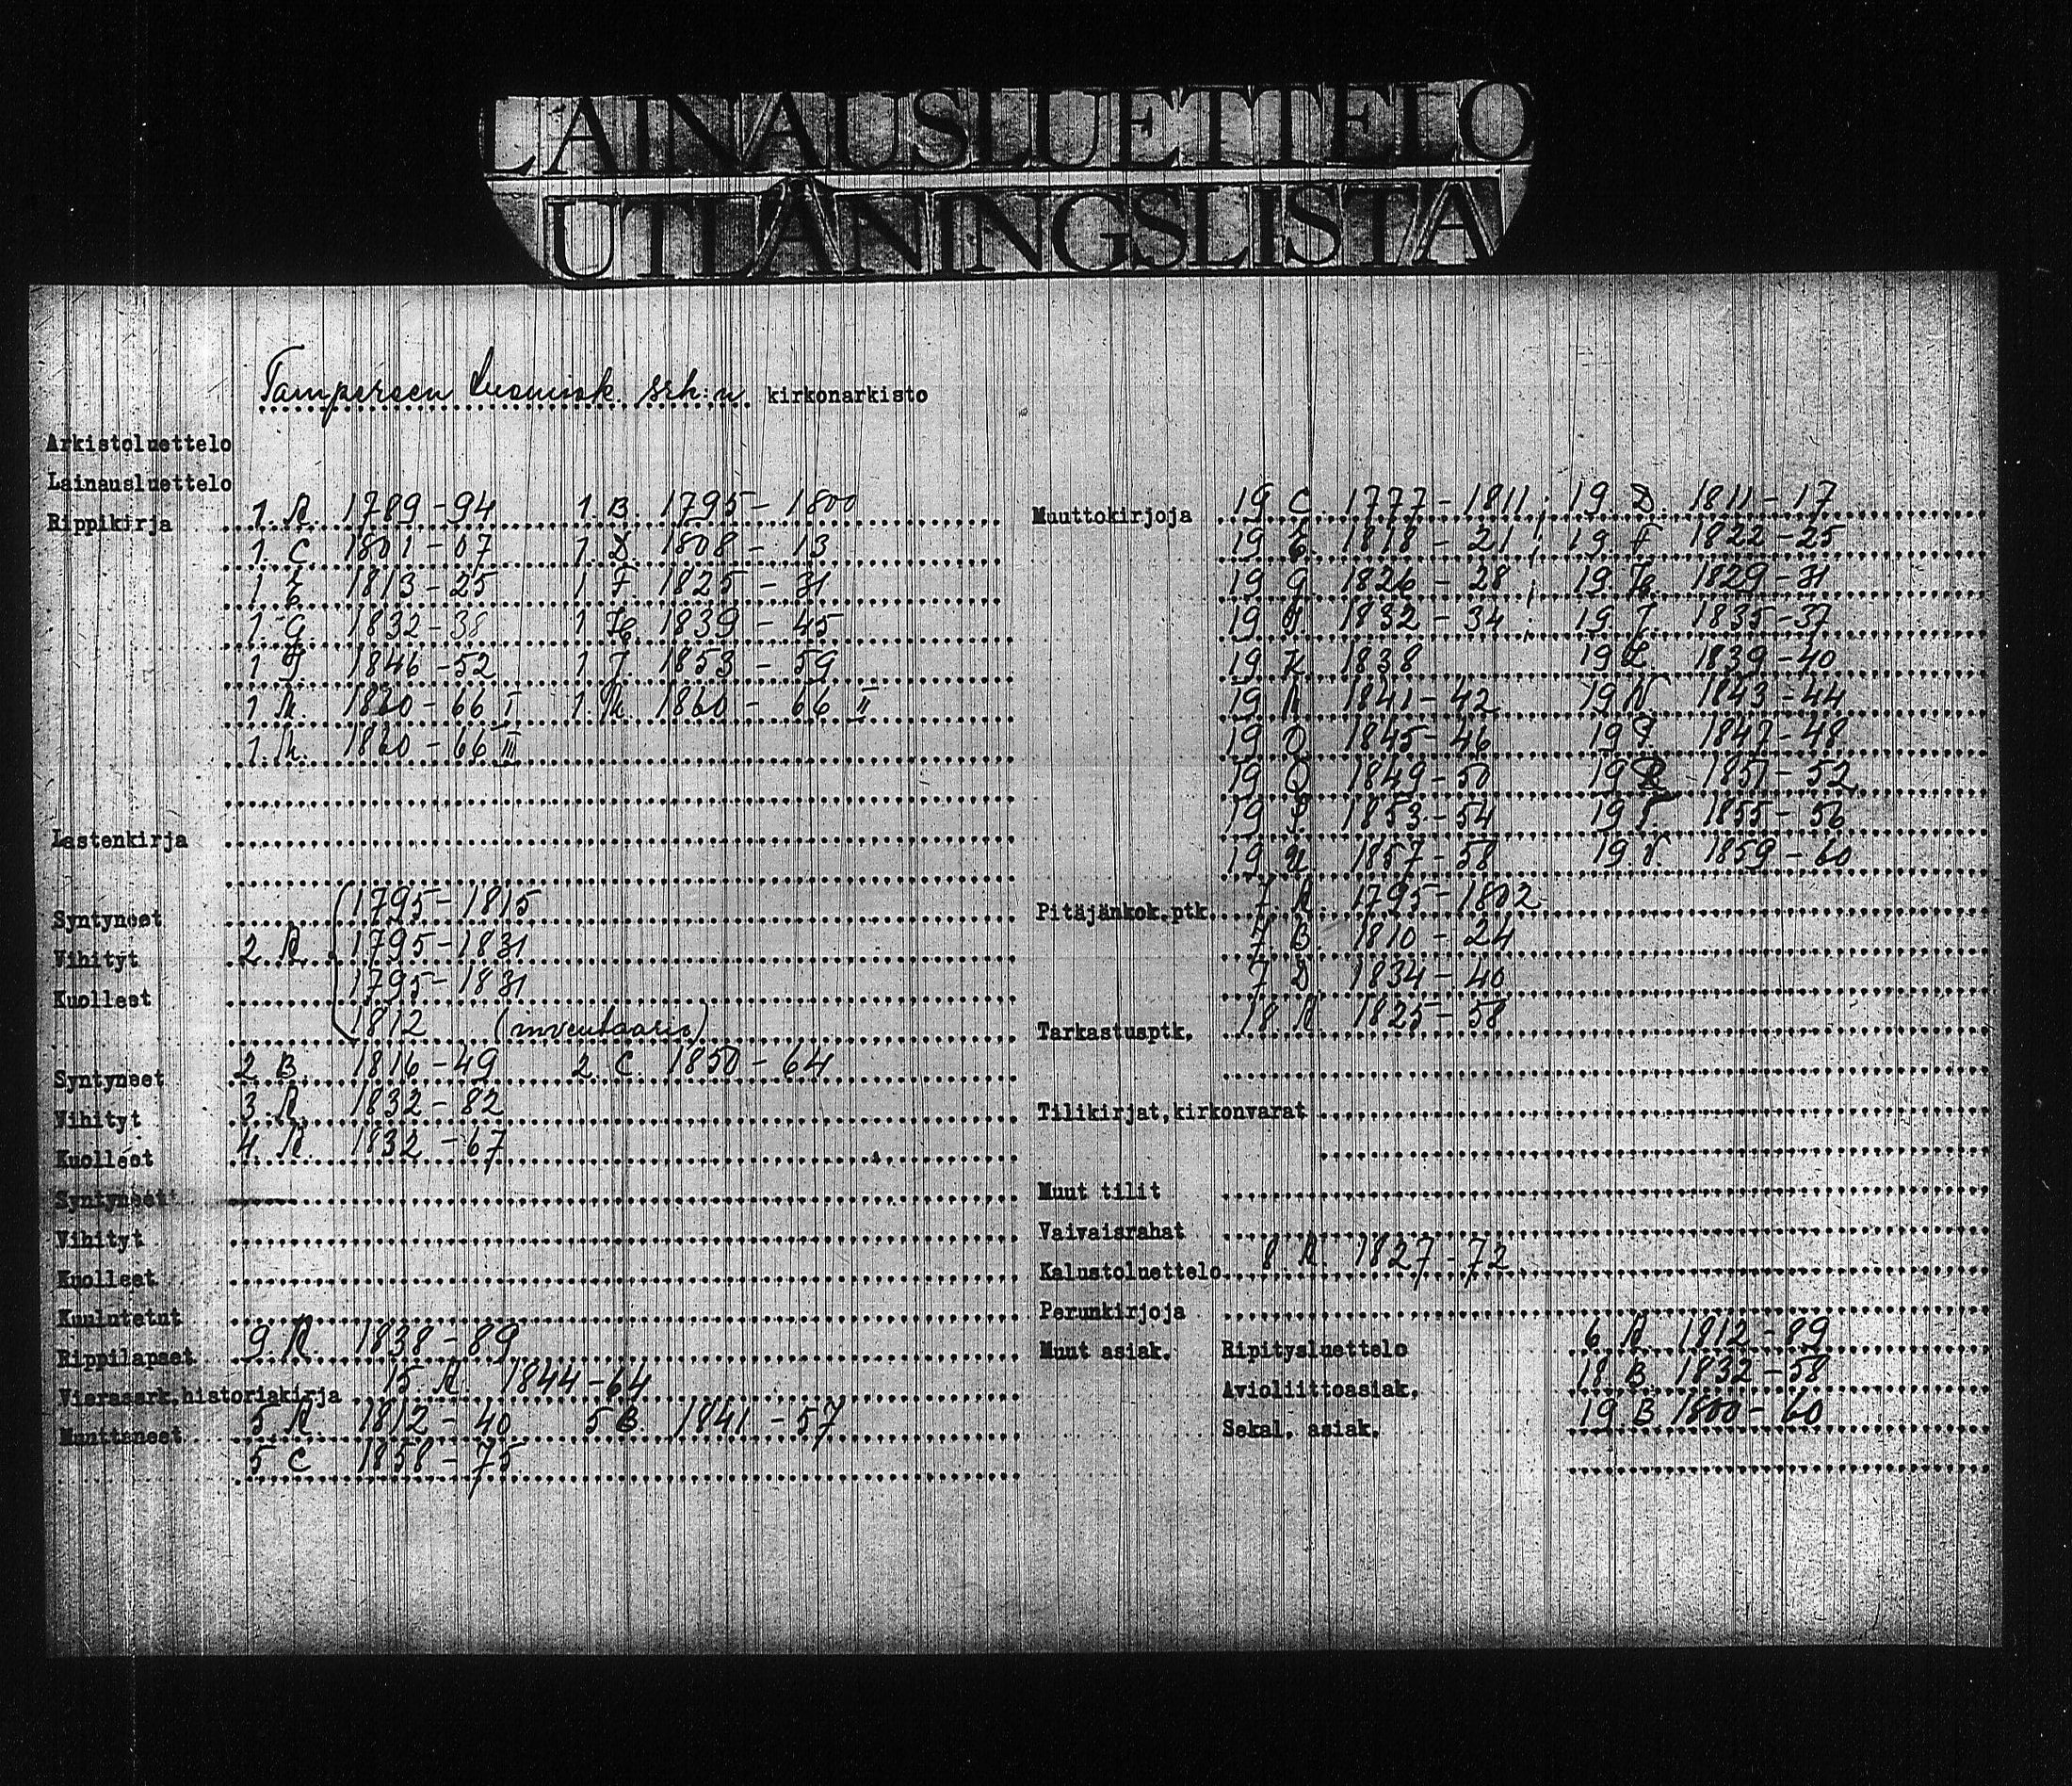 LAINAUSLUETTELO
UTLÅNINGSLISTA
Tampereen tuomiok. srk:n kirkonarkisto
Arkistoluettelo
Lainausluettelo
Rippikirja 1. A. 1789-94 1. B. 1795-1800
1. C. 1801-07 1. D. 1808-13
1 E 1813-25 1 F. 1825-31
1. G. 1832-38 1 H. 1839-45
1 I. 1846-52 1 J 1853-59
1 K. 1860-66 I 1. K. 1860-66 II
1. K. 1860-66 III
Lastenkirja
Syntyneet 1795-1815
Vihityt 2. A. 1795-1831
Kuolleet 1795-1831
1812 (inventaario)
Syntyneet 2 B. 1816-49 2. C. 1850-64
Vihityt 3. A. 1832-82
Kuolleet 4. A. 1832-67
Syntyneet
Vihityt
Kuolleet
Kuulutetut
Rippilapset 9. A. 1838-89
Vierassrk.historiakirja 15. A. 1844-64
Muuttaneet 5 A 1812-40 5 B. 1841-57
5 C 1858-75
Muuttokirjoja 19 C. 1777-1811; 19. D. 1811-17
19 E. 1818-21; 19 F. 1822-25
19 G 1826-28; 19. H. 1829-31
19 I 1832-34; 19 J. 1835-37
19 K 1838 19 L. 1839-40
19 M 1841-42 19 N. 1843-44
19 O. 1845-46 19 P. 1847-48
19 Q 1849-50 19 R 1851-52
19 S. 1853-54 19 T. 1855-56
19 U 1857-58 19 V. 1859-60
Pitäjänkok.ptk. 7 A. 1795-1802
7 B. 1810-24
7 D. 1834-40
Tarkastusptk. 18. A 1825-58
Tilikirjat,kirkonvarat
Muut tilit
Vaivaisrahat
Kalustoluettelo 8 A. 1827-72
Perunkirjoja
Muut asiak. Ripitysluettelo 6 A 1812-89
Avioliittoasiak. 18 B. 1832-58
Sekal. asiak. 19 B. 1800-60